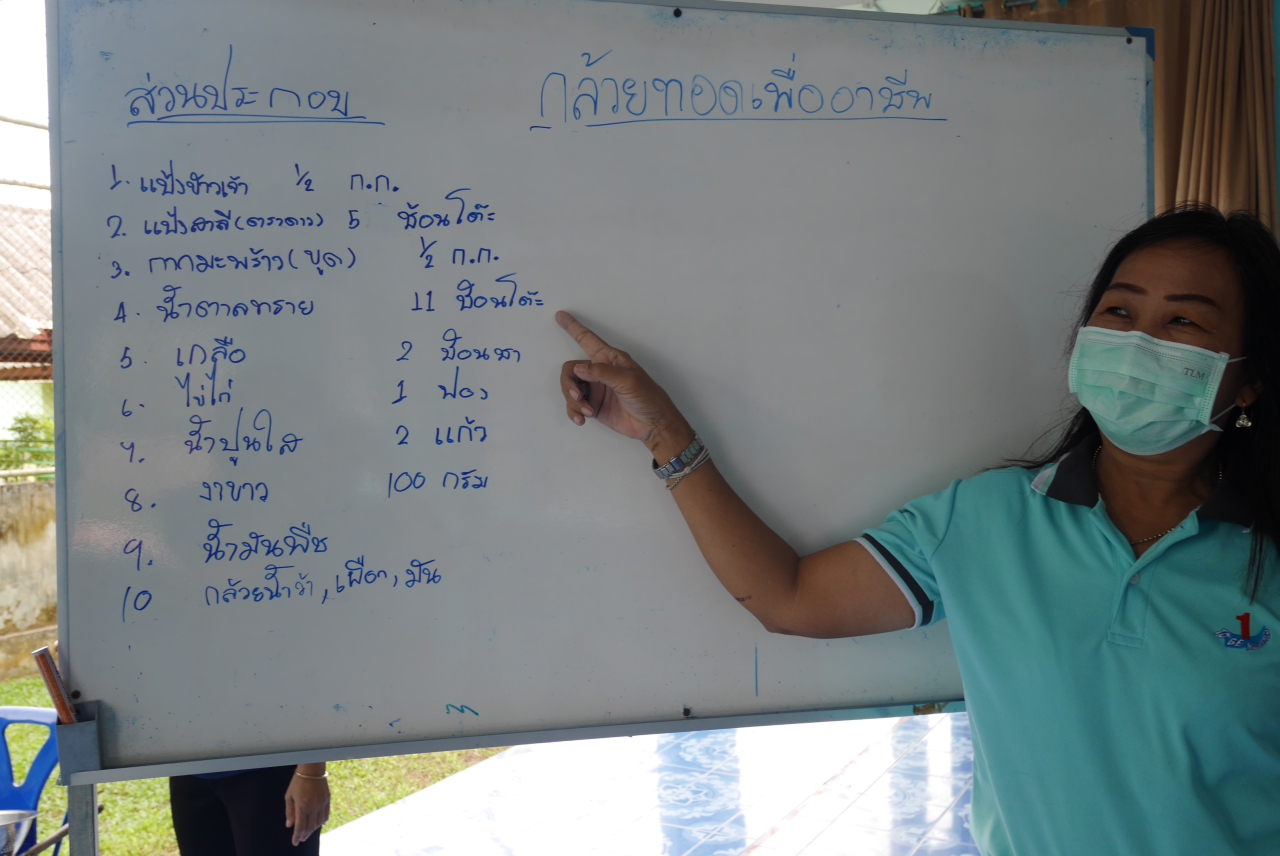 ส่วนประกอบ
กล้วยทอดเพื่ออาชีพ
1. แป้งข้าวเจ้า ½ ก.ก.
2. แป้งสาลี (ตราดาว) 5 ช้อนโต๊ะ
3. กากมะพร้าว (ขูด) ½ ก.ก.
4. น้ำตาลทราย 11 ช้อนโต๊ะ
5. เกลือ 2 ช้อนชา
6. ไข่ไก่ 1 ฟอง
7. น้ำปูนใส 2 แก้ว
8. งาขาว 100 กรัม
9. น้ำมันพืช
10 กล้วยน้ำว้า, เผือก, มัน
TLM
1